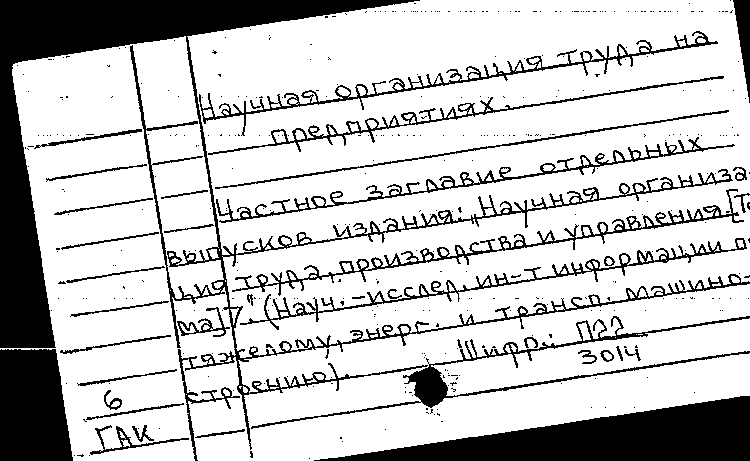 Научная организация труда на
предприятиях.
Частное заглавие отдельных
выпусков издания: „Научная организа-
ция труда, производства и управления. [Те
ма] 7." (Науч.-исслед. ин-т информации по
тяжелому, энерг. и трансп. машино-
строению). Шифр: П22
3014
6
ГАК